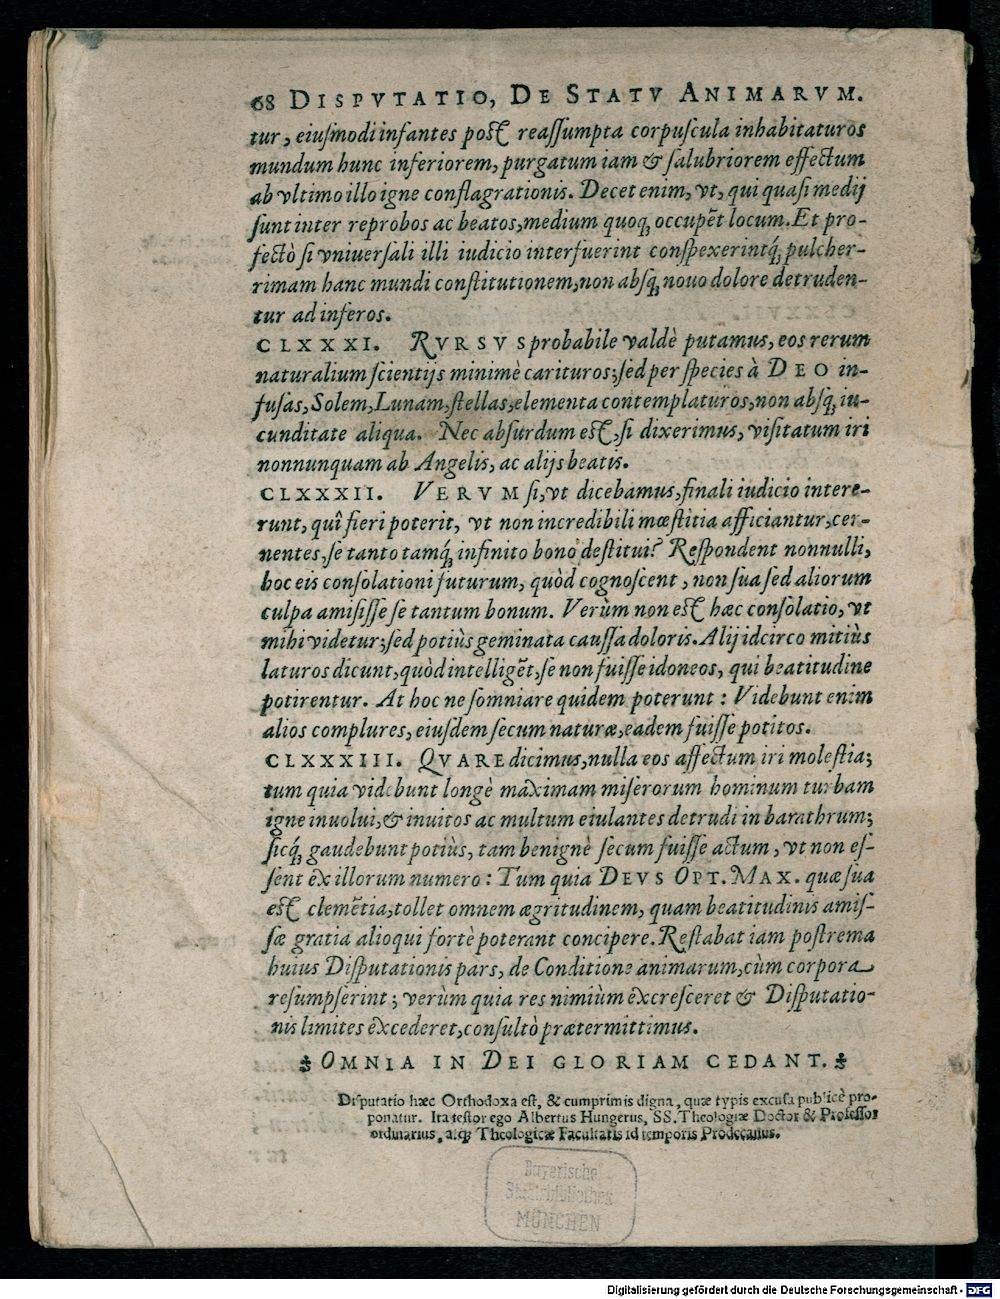 68 DISPVTATIO, DE STATV ANIMARVM.
tur, eiusmodi infantes post reassumpta corpuscula inhabitaturos
mundum hunc inferiorem, purgatum iam & salubriorem effectum
ab vltimo illo igne conflagrationis. Decet enim, vt, qui quasi medij
sunt inter reprobos ac beatos, medium quoq; occupēt locum. Et pro-
fectò si vniuersali illi iudicio interfuerint conspexerintq́; pulcher-
rimam hanc mundi constitutionem, non absq; nouo dolore detruden-
tur ad inferos.
CLXXXI. RVRSVS probabile valdè putamus, eos rerum
naturalium scientijs minimè carituros; sed per species à DEO in-
fusas, Solem, Lunam, stellas, elementa contemplaturos, non absq; iu-
cunditate aliqua. Nec absurdum est, si dixerimus, visitatum iri
nonnunquam ab Angelis, ac alijs beatis.
CLXXXII. VERVM si, vt dicebamus, finali iudicio intere-
runt, quî fieri poterit, vt non incredibili mœstitia afficiantur, cer-
nentes, se tanto tamq́; infinito bono destitui? Respondent nonnulli,
hoc eis consolationi futurum, quòd cognoscent, non sua sed aliorum
culpa amisisse se tantum bonum. Verùm non est hæc consolatio, vt
mihi videtur; sed potiùs geminata caussa doloris. Alij idcirco mitiùs
laturos dicunt, quòd intelligēt, se non fuisse idoneos, qui beatitudine
potirentur. At hoc ne somniare quidem poterunt: Videbunt enim
alios complures, eiusdem secum naturæ, eadem fuisse potitos.
CLXXXIII. QVARE dicimus, nulla eos affectum iri molestia;
tum quia videbunt longè maximam miserorum hominum turbam
igne inuolui, & inuitos ac multum eiulantes detrudi in barathrum;
sicq́; gaudebunt potiùs, tam benignè secum fuisse actum, vt non es-
sent ex illorum numero: Tum quia DEVS OPT. MAX. quæ sua
est clemētia, tollet omnem ægritudinem, quam beatitudinis amis-
sæ gratia alioqui fortè poterant concipere. Restabat iam postrema
huius Disputationis pars, de Conditione animarum, cùm corpora
resumpserint; verùm quia res nimiùm excresceret & Disputatio-
nis limites excederet, consultò prætermittimus.
OMNIA IN DEI GLORIAM CEDANT.
Disputatio hæc Orthodoxa est, & cumprimis digna, quæ typis excusa publicè pro-
ponatur. Ita testor ego Albertus Hungerus, SS. Theologiæ Doctor & Professor
ordinarius, atq; Theologicæ Facultatis id temporis Prodecanus.
Bayerische
Staatsbibliothek
MÜNCHEN
Digitalisierung gefördert durch die Deutsche Forschungsgemeinschaft - DFG